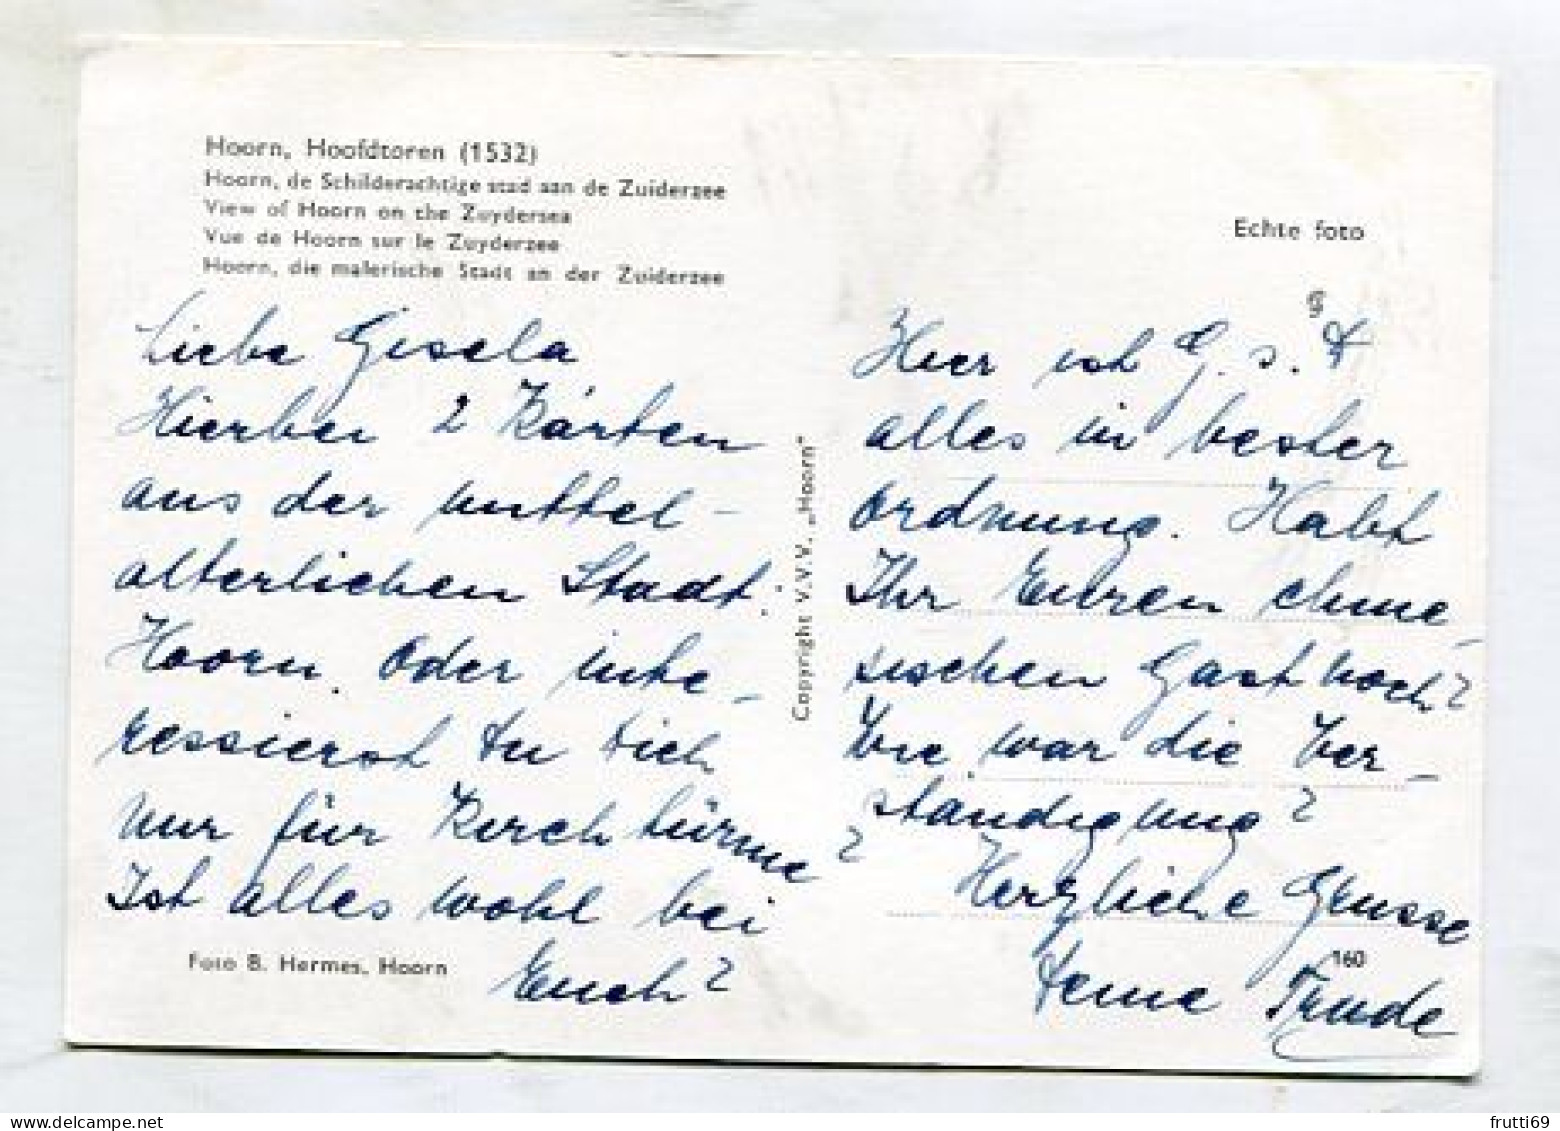 Hoorn, Hoofdtoren (1532)
Hoorn, de Schilderachtige stad aan de Zuiderzee
View of Hoorn on the Zuydersea
Vue de Hoorn sur le Zuyderzee
Hoorn, die malerische Stadt an der Zuiderzee
Liebe Gisela
Hierbei 2 Karten
aus der mittel-
alterlichen Stadt
Hoorn. Oder inte-
ressierst Du Dich
nur für Kirchtürme?
Ist alles wohl bei
Euch?
Foto B. Hermes, Hoorn
Copyright V.V.V. „Hoorn"
Echte foto
Hier ist G. s. D
alles in bester
Ordnung. Habt
Ihr Euren chine-
sischen Gast noch?
Wie war die Ver-
ständigung?
Herzliche Grüsse
160
Deine Trude
frutti69